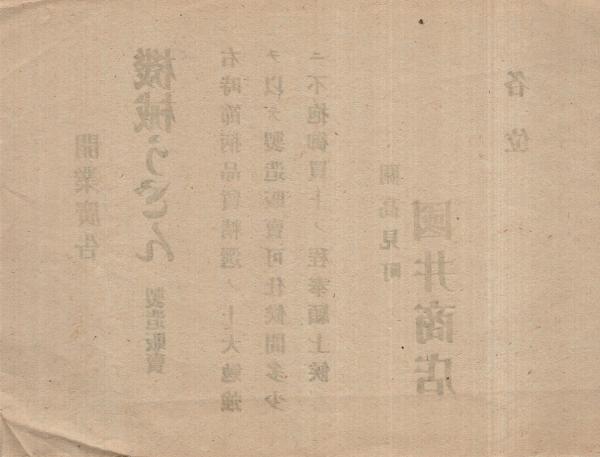 開業廣告
機械うどん 製造販賣
右時節柄品質精選ノ上大勉強
ヲ以テ製造販賣可仕候間多少
ニ不拘御買上ノ程奉願上候
關高見町
國井商店
各位